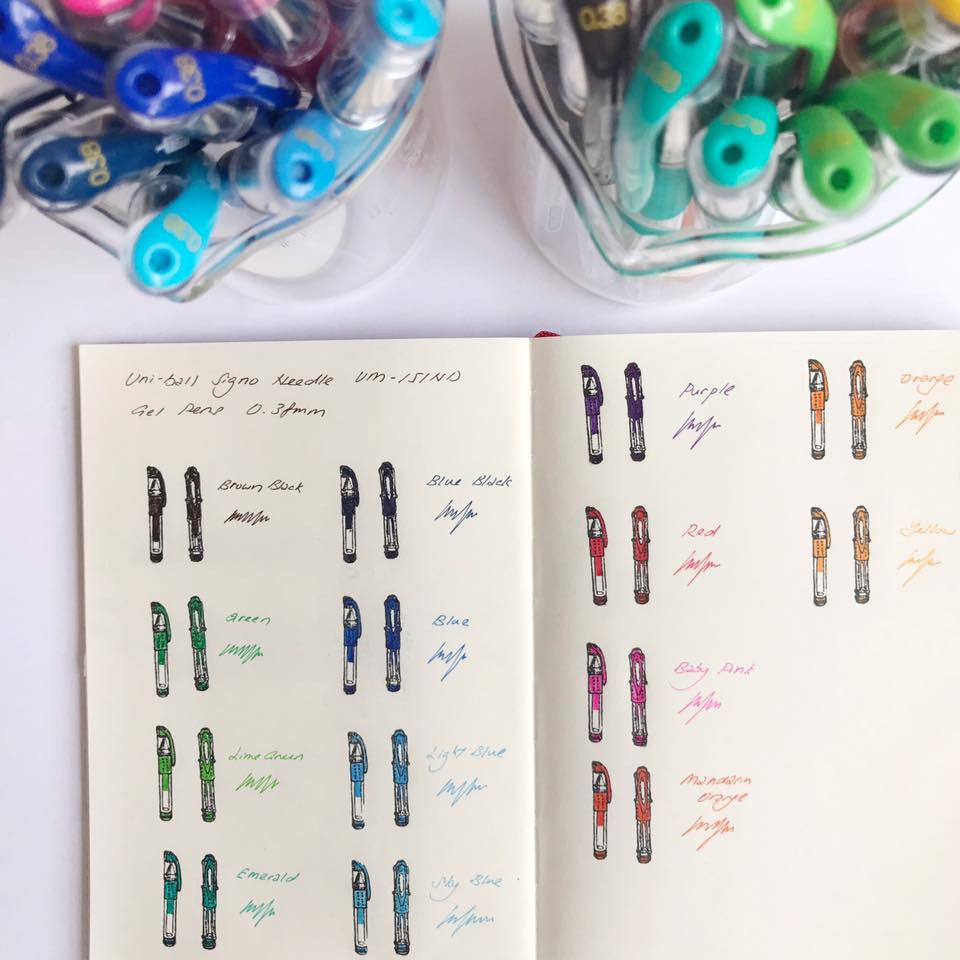 0.38
0.38
0.38
0.38
Uni-ball Signo Needle UM-151ND
Gel Pens 0.38mm
Brown Black
Green
Lime Green
Emerald
Blue Black
Blue
Light Blue
Sky Blue
Purple
Red
Baby Pink
Mandarin
Orange
Orange
Yellow